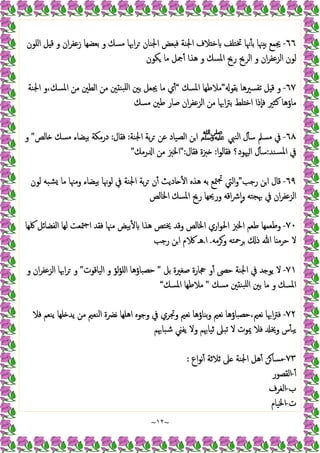 ٦٦- يجمع بينها بأنها تختلف باختلاف الجنة فبعض الجنان ترابها مسك و بعضها زعفران و قيل اللون
لون الزعفران و الريح ريح المسك و هذا أجمل ما يكون
٦٧- و قيل تفسيرها بقوله "ملاطها المسك "أي ما يجعل بين اللبنتين من الطين من المسك،و الجنة
ماؤها كثير فإذا اختلط بترابها من الزعفران صار طين مسك
٦٨- في مسلم سأل النبي ﷺ ابن الصياد عن تربة الجنة: فقال: درمكة بيضاء مسك خالص" و
في المسند:سأل اليهود؟ فقالوا: خبزة فقال:"الخبز من الدرمك"
٦٩- قال ابن رجب"والتي تجتمع به هذه الأحاديث أن تربة الجنة في لونها بيضاء ومنها ما يشبه لون
الزعفران في بهجته واشراقه وريحها ريح المسك الخالص
٧٠-وطعمها طعم الخبز الحواري الخالص وقد يختص هذا بالأبيض منها فقد اجتمعت لها الفضائل كلها
لا حرمنا الله ذلك برحمته وكرمه. ا.هـ كلام ابن رجب
٧١- لا يوجد في الجنة حصى أو حجارة صغيرة بل " حصباؤها اللؤلؤ و الياقوت" و ترابها الزعفران و
المسك و ما بين اللبنتين مسك " ملاطها المسك"
٧٢- فترابها نعيم،حصباؤها نعيم وبناؤها نعيم وتجري في وجوه اهلها نضرة النعيم من يدخلها ينعم فلا
يبأس ويخلد فلا يموت لا تبلى ثيابهم ولا يفنى شبابهم
٧٣-مساكن أهل الجنة على ثلاثة أنواع :
أ-القصور
ب-الغرف
ت-الخيام
~١٢~